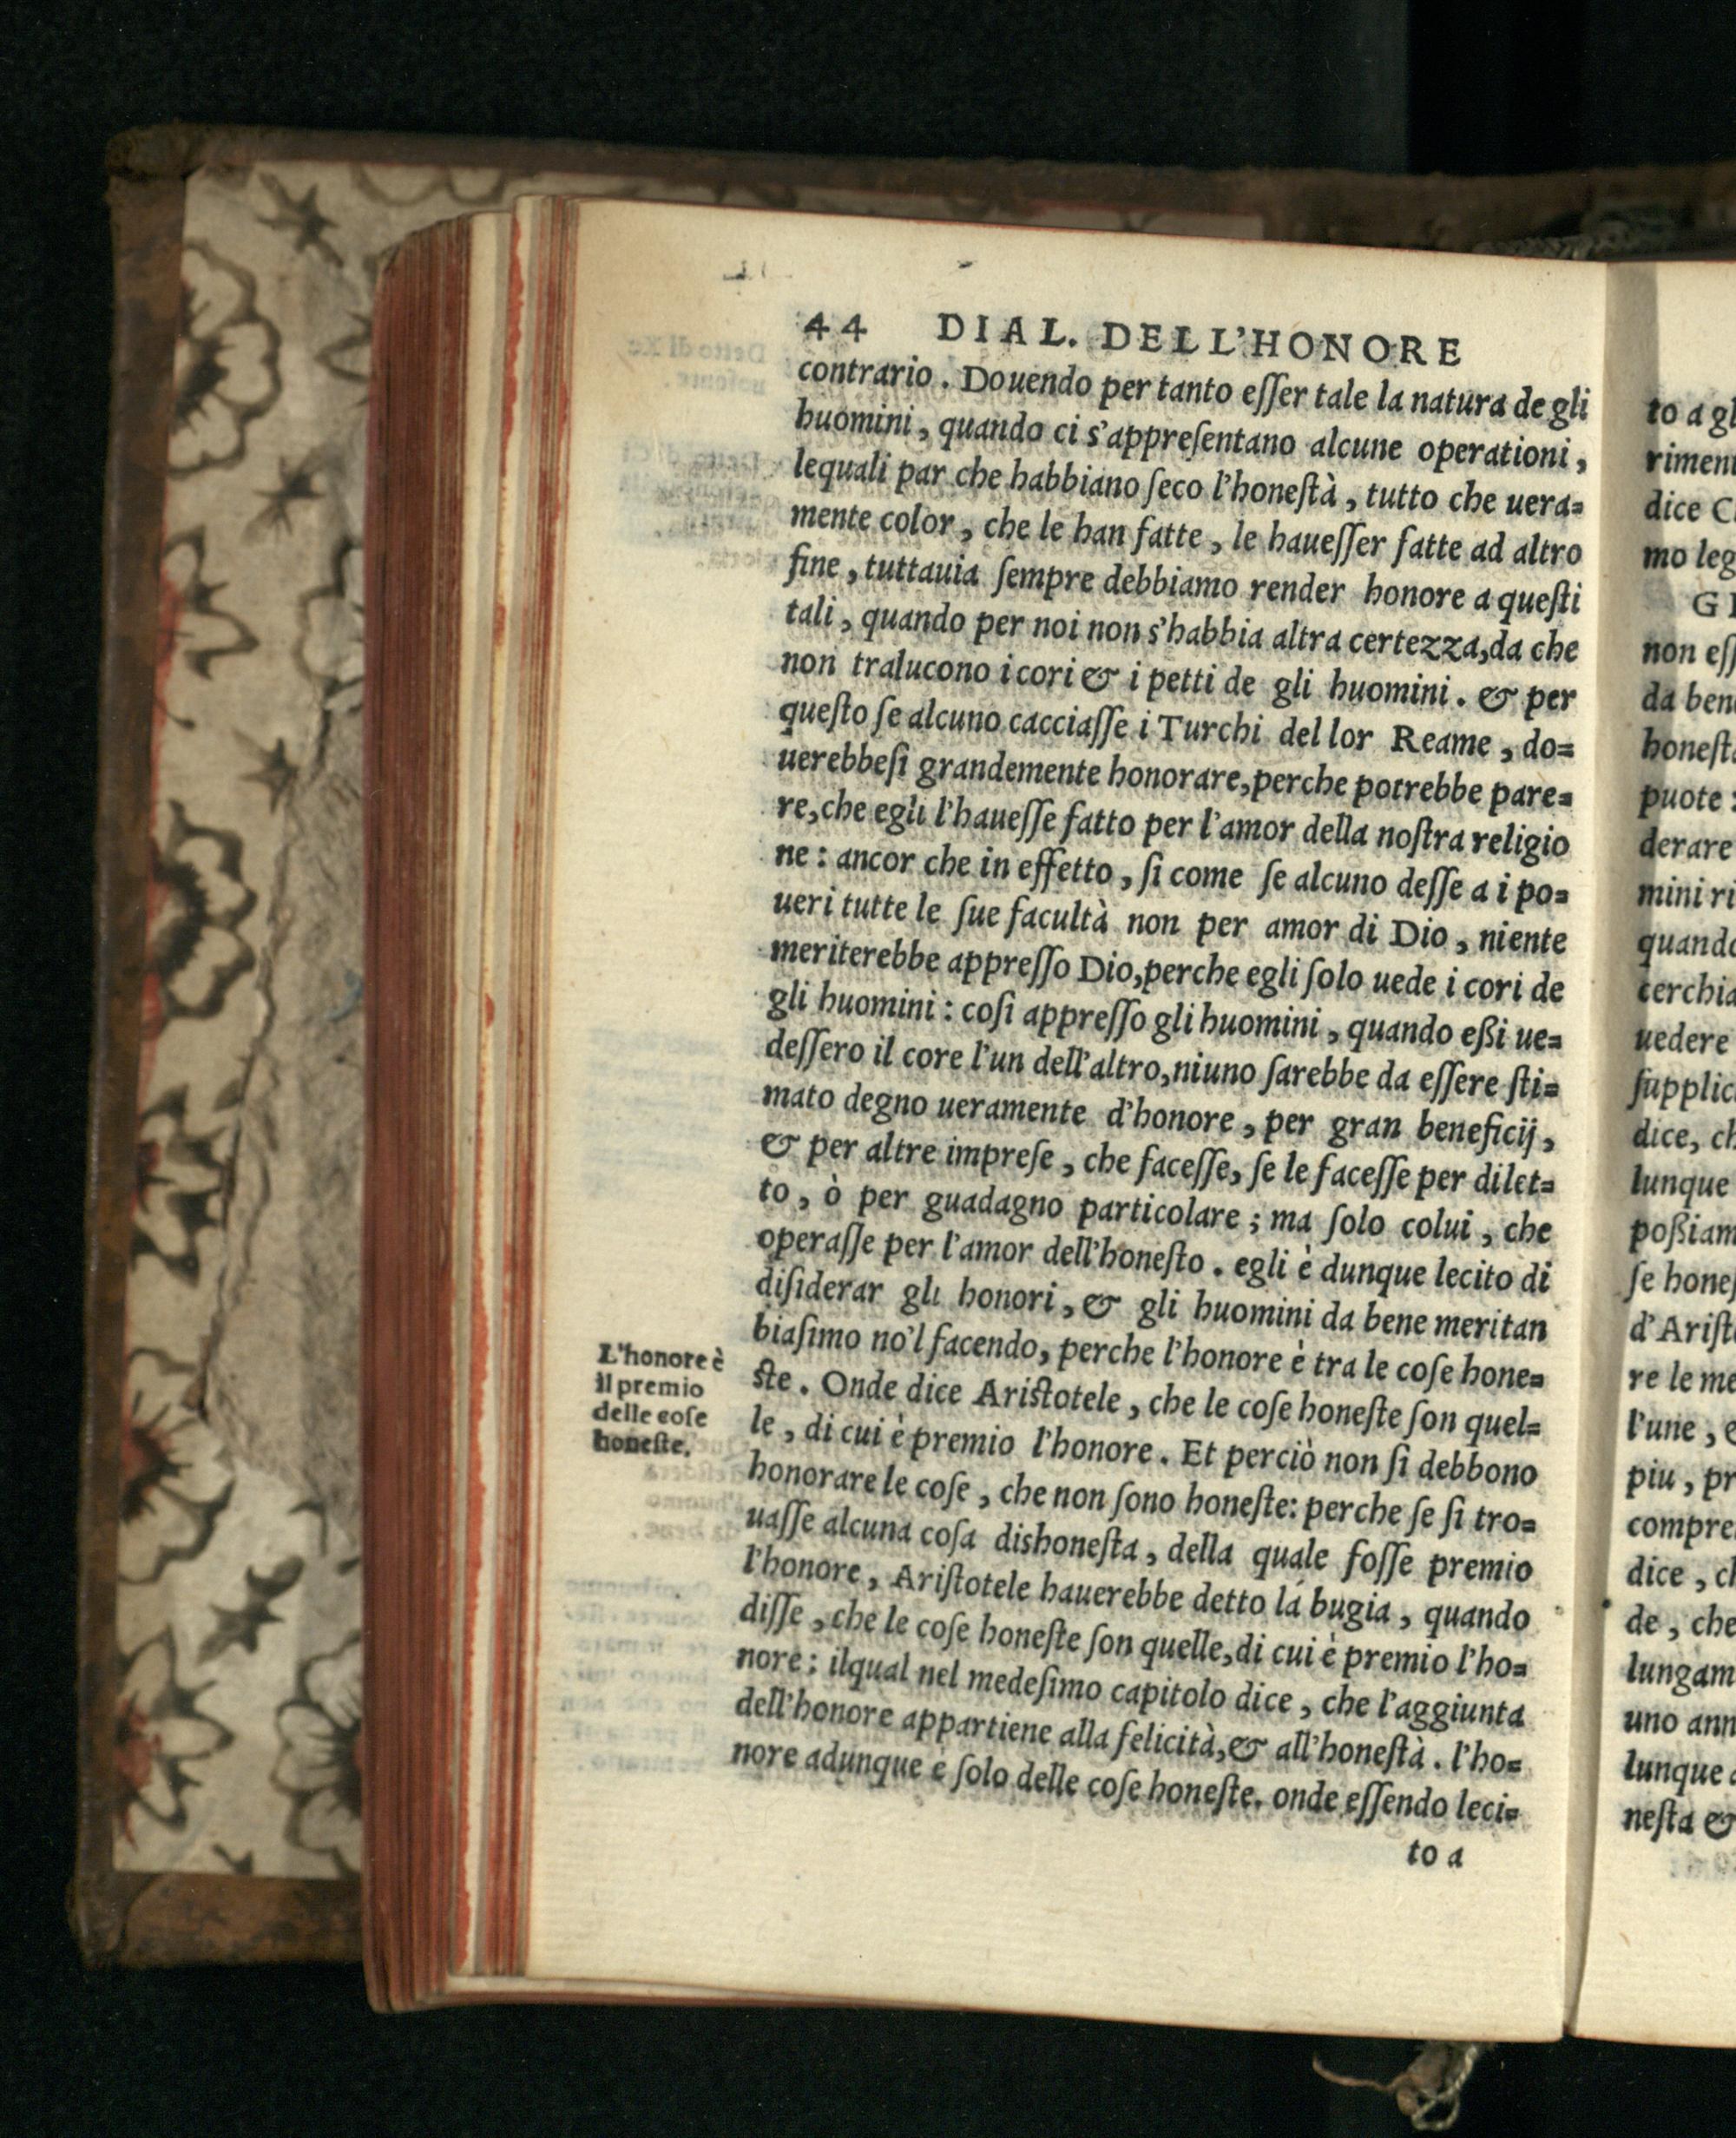 44 DIAL. DELL'HONORE
contrario. Douendo per tanto eſſer tale la natura de gli
huomini, quando ci s'appreſentano alcune operationi,
lequali par che habbiano ſeco l'honeſtà, tutto che uera=
mente color, che le han fatte, le haueſſer fatte ad altro
fine, tuttauia ſempre debbiamo render honore a queſti
tali, quando per noi non s'habbia altra certezza, da che
non tralucono i cori & i petti de gli huomini. & per
queſto ſe alcuno cacciaſſe i Turchi del lor Reame, do=
uerebbeſi grandemente honorare, perche potrebbe pare=
re, che egli l'haueſſe fatto per l'amor della noſtra religio
ne: ancor che in effetto, ſi come ſe alcuno deſſe a i po=
ueri tutte le ſue facultà non per amor di Dio, niente
meriterebbe appreſſo Dio, perche egli ſolo uede i cori de
gli huomini: coſi appreſſo gli huomini, quando eßi ue=
deſſero il core l'un dell'altro, niuno ſarebbe da eſſere ſti=
mato degno ueramente d'honore, per gran beneficij,
& per altre impreſe, che faceſſe, ſe le faceſſe per dilet=
to, ò per guadagno particolare; ma ſolo colui, che
operaſſe per l'amor dell'honeſto. egli è dunque lecito di
diſiderar gli honori, & gli huomini da bene meritan
biaſimo no'l facendo, perche l'honore è tra le coſe hone=
ſte. Onde dice Ariſtotele, che le coſe honeſte ſon quel=
le, di cui è premio l'honore. Et perciò non ſi debbono
honorare le coſe, che non ſono honeſte: perche ſe ſi tro=
uaſſe alcuna coſa dishoneſta, della quale foſſe premio
l'honore, Ariſtotele hauerebbe detto lá bugia, quando
diſſe, che le coſe honeſte ſon quelle, di cui è premio l'ho=
nore: ilqual nel medeſimo capitolo dice, che l'aggiunta
dell'honore appartiene alla felicità, & all'honeſtà. l'ho=
nore adunque è ſolo delle coſe honeſte. onde eſſendo leci=
to a
L'honore è
il premio
delle coſe
honeſte.
to a gl
rimen
dice C
mo leg
G
non eſſ
da ben
honeſt
puote:
derare
mini ri
quando
cerchia
uedere
ſupplic
dice, ch
lunque
poßiam
ſe honeſ
d'Ariſt
re le me
l'une, &
piu, pr
compre
dice, ch
de, che
lungam
uno ann
lunque
neſta &